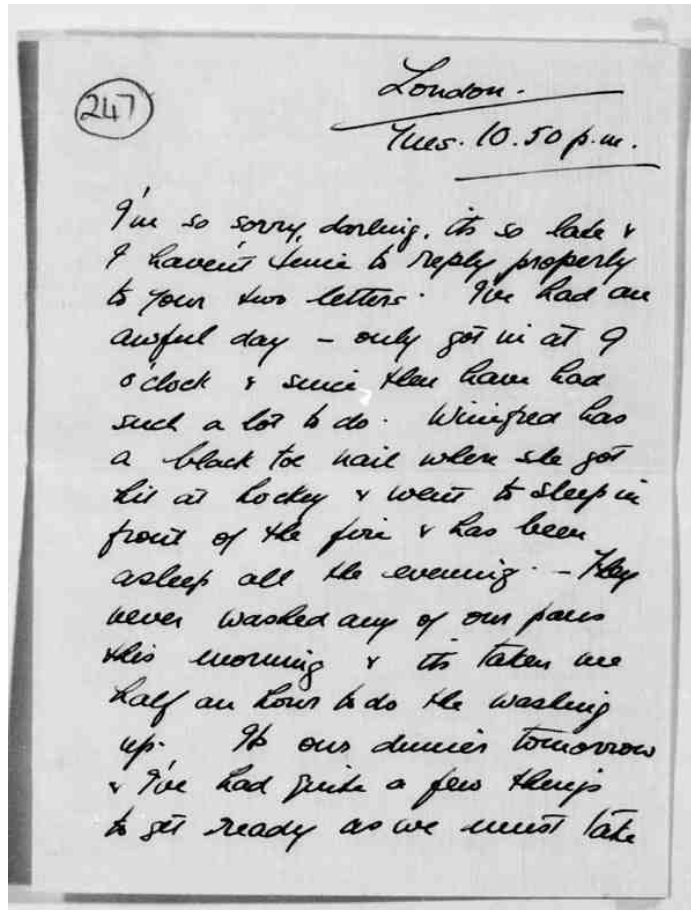 247
London.
Tues. 10.50 p.m.
I'm so sorry, darling, its so late &
I haven't time to reply properly
to your two letters. I've had an
awful day – only got in at 9
o'clock & since then have had
such a lot to do. Winifred has
a black toe nail where she got
hit at hockey & went to sleep in
front of the fire & has been
asleep all the evening. – They
never washed any of our pans
this morning & its taken me
half an hour to do the washing
up. Its our dinner tomorrow
& I've had quite a few things
to get ready as we must take